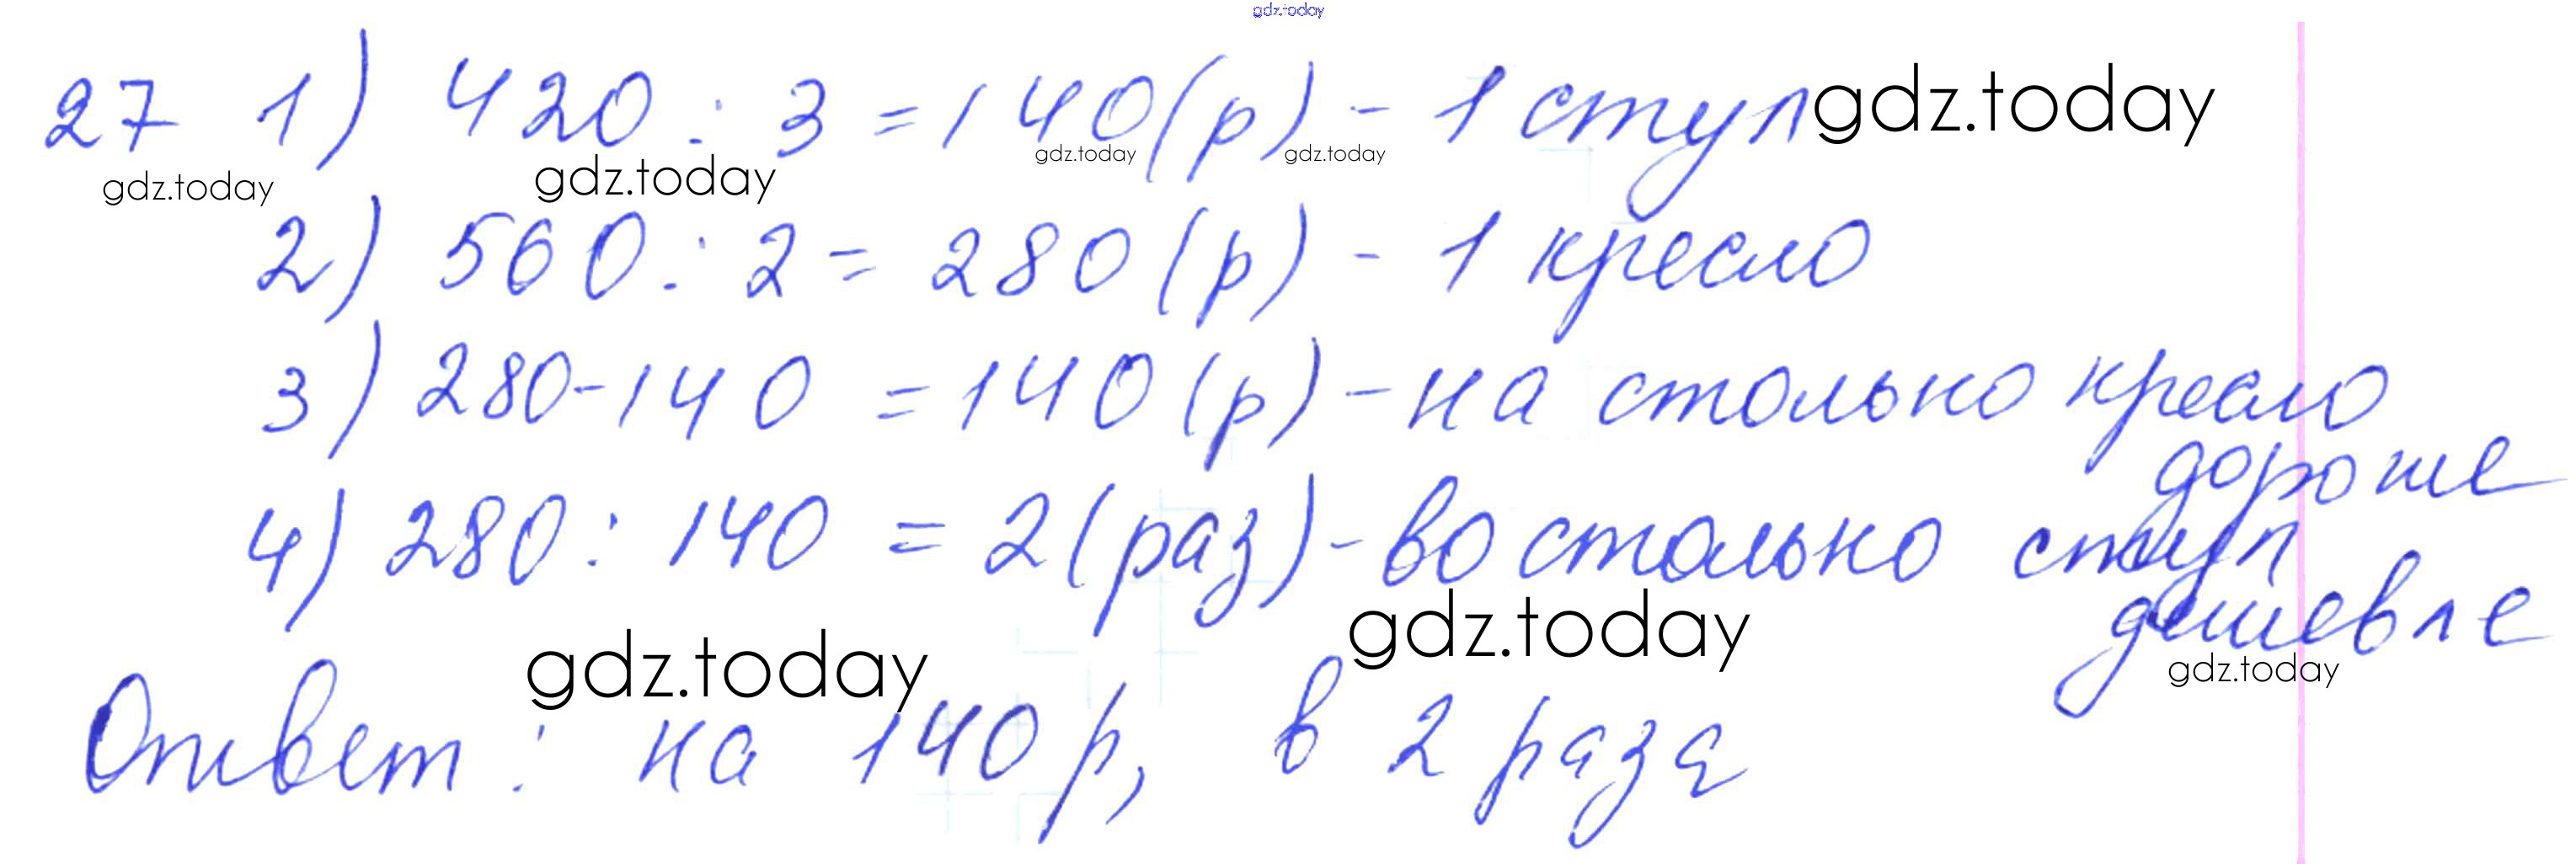 gdz.today
27 1) 420 : 3 = 140 (р) - 1 стул gdz.today
gdz.today gdz.today gdz.today gdz.today
2) 560 : 2 = 280 (р) - 1 кресло
3) 280 - 140 = 140 (р) - на столько кресло
дороже
4) 280 : 140 = 2 (раз) - во столько стул
дешевле
gdz.today gdz.today gdz.today
Ответ : на 140 р, в 2 раза